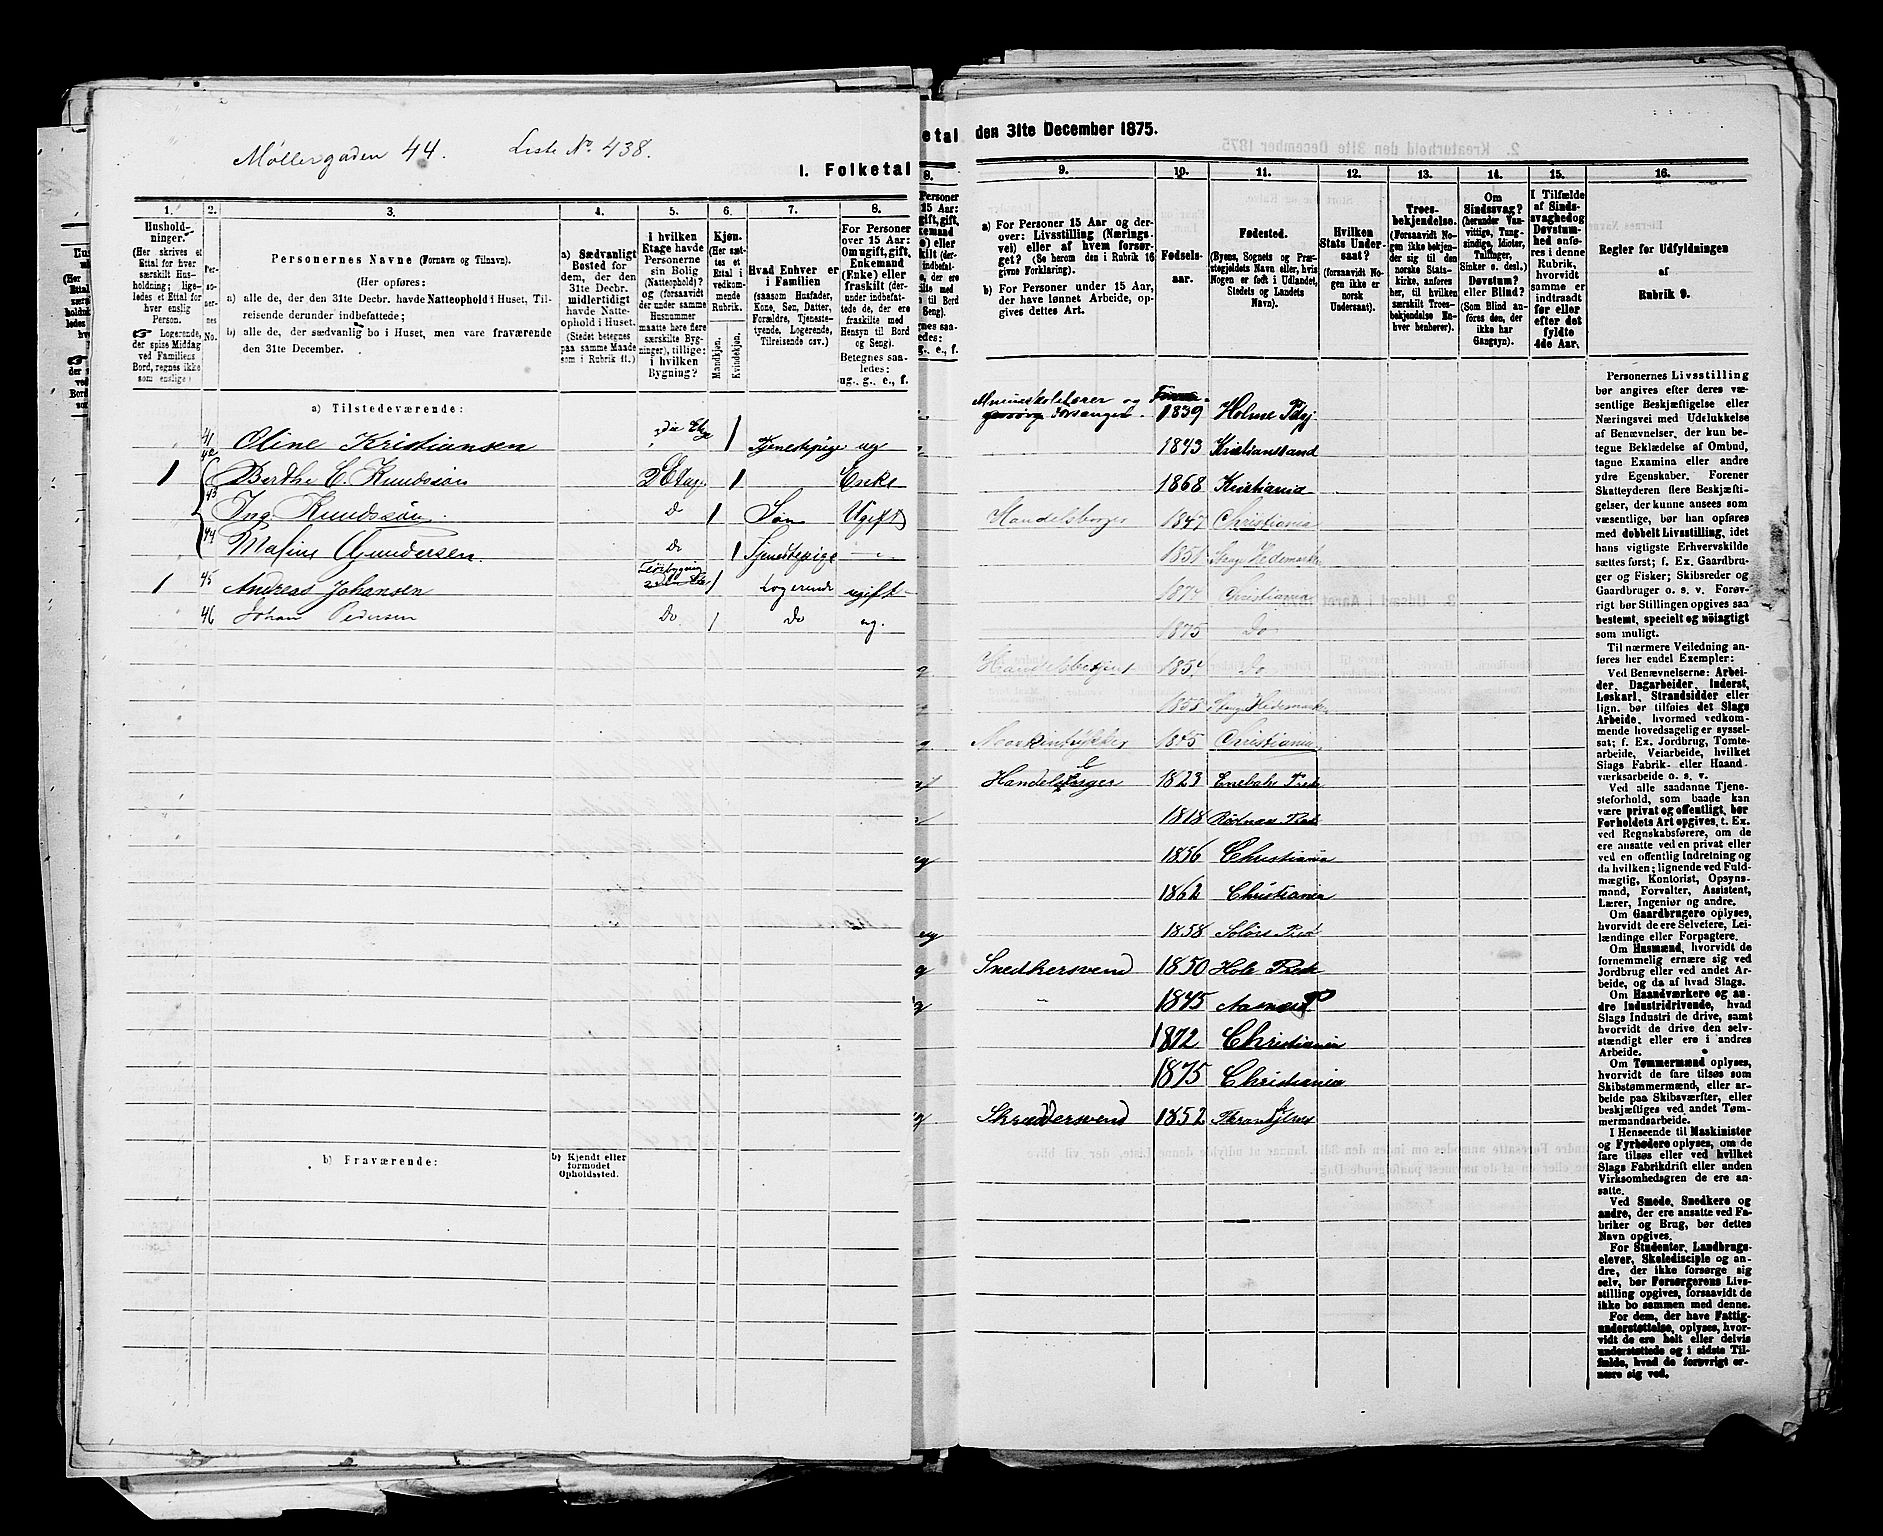 Møllergaden 44. Liste No. 438.
I. Folketal
etal
den 31te December 1875.
1.
2.
3.
4.
5.
6.
7.
8.
Hushold-
ninger.
(Her skrives et
Ettal for hver
særskilt Hus-
holdning; lige-
ledes et Ettal for
hver enslig
Person.
Logerende,
der spise Middag
ved Familiens
Bord, regnes ikke
som enslige.)
Per-
so-
ner-
nes
No.
Personernes Navne (Fornavn og Tilnavn).
(Her opføres:
a) alle de, der den 31te Decbr. havde Natteophold i Huset, Til-
reisende derunder indbefattede;
b) alle de, der sædvanlig bo i Huset, men vare fraværende
den 31te December.
a) Sædvanligt
Bosted for
dem, der den
31te Decbr.
midlertidigt
havde Natte-
ophold i Huset.
(Stedet betegnes
paa samme Maade
som i Rubrik 11.)
I hvilken
Etage havde
Personerne
sin Bolig
(Natteophold)?
og (forsaavidt
der under samme
Husnummer
maatte høre flere
særskilte Byg-
ninger), tillige:
i hvilken
Bygning?
Kjøn.
(Her sæt-
tes et
Ettal i
vedkom-
mende
Rubrik.)
Mandkjøn.
Kvindekjøn.
Hvad Enhver er
i Familien
(saasom Husfader,
Kone, Søn, Datter,
Forældre, Tjeneste-
tyende, Logerende,
Tilreisende osv.)
For Personer
over 15 Aar:
Om ugift, gift,
Enkemand
(Enke) eller
fraskilt (der-
under indbefat-
tede de, der ere
fraskilte med
Hensyn til Bord
og Seng).
Betegnes saa-
ledes:
ug., g., e., f.
a) Tilstedeværende:
41 Oline Kristiansen 1 Tjenestepige ug
1 42 Berthe C. Knudssøn 2 Etag. 1 Enke
43 Ing Knudssøn Do 1 Søn Ugift
44 Do 1 Tjenestepige
1 45 Andreas Johansen 1 Logerende ugift
46 Johan Pedersen Do. 1 Do ug.
b) Fraværende:
b) Kjendt eller
formodet
Opholdssted.
9.
10.
11.
12.
13.
14.
15.
16.
a) For Personer 15 Aar og der-
over: Livsstilling (Nærings-
vei) eller af hvem forsør-
get? (Se herom den i Rubrik 16
givne Forklaring).
b) For Personer under 15 Aar,
der have lønnet Arbeide, op-
gives dettes Art.
Fødsels-
aar.
Fødested.
(Byens, Sognets og Præ-
stegjeldets Navn eller, hvis
No- gen er født i Udlandet,
Stedets og Landets
Navn).
Hvilken
Stats Under-
saat?
(forsaavidt No-
gen ikke er
norsk
Undersaat).
Troes-
bekjendelse.
(Forsaavidt No-
gen ikke bekjen-
der sig til den
norske Stats-
kirke, anføres
her, til hvilken
særskilt Troes-
bekjendelse En-
hver henhører).
Om
Sindssvag?
(herunder Van-
vittige, Tung-
sindige, Idioter,
Tullinger,
Sinker o. desl.)
Døvstum?
eller Blind?
(Som Blind an-
føres den, der
ikke har
Gangsyn).
I Tilfælde
af Sinds-
svaghed og
Døvstum-
hed anfø-
res i denne
Rubrik,
hvorvidt
samme er
indtraadt
før eller
efter det
fyldte
4de Aar.
Regler for Udfyldningen
af
Rubrik 9.
1839 Holme Pdgj
1843 Kristiansand
1868 Kristiania
Handelsborger 1847 Christiania
1851 Stange Hedemarken
1874 Christiania
1875 Do
Handelsbetjent 1854 Do
1858 Stange Hedemarken
1845 Christiania
Handelsborger 1823 Enebak Præst
1818
1856 Christiania
1862 Christiania
1858 Solørs Præst
Snedkersvend 1850 Hole Præst
" 1845 Aasnæs P
1872 Christiania
1875 Christiania
Skreddersvend 1852 Throndhjem
Personernes Livsstilling
bør angives efter deres væ-
sentlige Beskjæftigelse eller
Næringsvei med Udelukkelse
af Benævnelser, der kun be-
tegne Beklædelse af Ombud,
tagne Examina eller andre
ydre Egenskaber. Forener
Skatteyderen flere Beskjæf-
tigelser, der kunne ansees som
væsentlige, bør han opføres
med dobbelt Livsstilling, idet
hans vigtigste Erhvervskilde
sættes først; f. Ex. Gaardbru-
ger og Fisker; Skibsreder og
Gaardbruger o. s. v. Forøv-
rigt bør Stillingen opgives saa
bestemt, specielt og nøiagtigt
som muligt.
Til nærmere Veiledning an-
føres her endel Exempler:
Ved Benævnelserne: Arbei-
der, Dagarbeider, Inderst,
Løskarl, Strandsidder eller
lign. bør tilføies det Slags
Arbeide, hvormed vedkom-
mende hovedsagelig er syssel-
sat; f. Ex. Jordbrug, Tomte-
arbeide, Veiarbeide, hvilket
Slags Fabrik- eller Haand-
værksarbeide o. s. v.
Ved alle saadanne Tjene-
steforhold, som baade kan
være privat og offentligt, bør
Forholdets Art opgives, t. Ex.
ved Regnskabsførere, om de
ere ansatte ved en privat eller
ved en offentlig Indretning og
da hvilken; lignende ved Fuld-
mægtig, Kontorist, Opsyns-
mand, Forvalter, Assistent,
Lærer, Ingeniør og andre.
Om Gaardbrugere oplyses,
hvorvidt de ere Selveiere, Lei-
lændinge eller Forpagtere.
Om Husmænd, hvorvidt de
fornemmelig ernære sig ved
Jordbrug eller ved andet Ar-
beide, og da af hvad Slags.
Om Haandværkere og an-
dre Industridrivende, hvad
Slags Industri de drive, samt
hvorvidt de drive den selv-
stændigt eller ere i andres
Arbeide.
Om Tømmermænd oplyses,
hvorvidt de fare tilsøs som
Skibstømmermænd, eller ar-
beide paa Skibsværfter, eller
beskjæftiges ved andet Tøm-
mermandsarbeide.
I Henseende til Maskinister
og Fyrbødere oplyses, om de
fare tilsøs eller ved hvilket
Slags Fabrikdrift eller anden
Virksomhedsgren de ere an-
satte.
Ved Smede, Snedkere og
andre, der ere ansatte ved Fa-
briker og Brug, bør dettes
Navn opgives.
For Studenter, Landbrugs-
elever, Skoledisciple og an-
dre, der ikke forsørge sig
selv, bør Forsørgerens Livs-
stilling opgives, forsaavidt de
ikke bo sammen med denne.
For dem, der have Fattig-
understøttelse, oplyses, hvor-
vidt de ere helt eller delvis
understøttede og i sidste Til-
fælde, hvad de forøvrigt er-
nære sig ved.